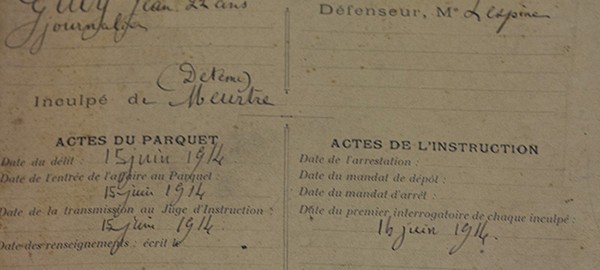 Jean 22 ans
Journalier
Défenseur, Me Lespine
(Détenu)
Inculpé de Meurtre
ACTES DU PARQUET
Date du délit : 15 juin 1914
Date de l'entrée de l'affaire au Parquet :
15 juin 1914
Date de la transmission au Juge d'Instruction :
15 juin 1914
Date des renseignements : écrit le
ACTES DE L'INSTRUCTION
Date de l'arrestation :
Date du mandat de dépôt :
Date du mandat d'arrêt :
Date du premier interrogatoire de chaque inculpé :
16 juin 1914.